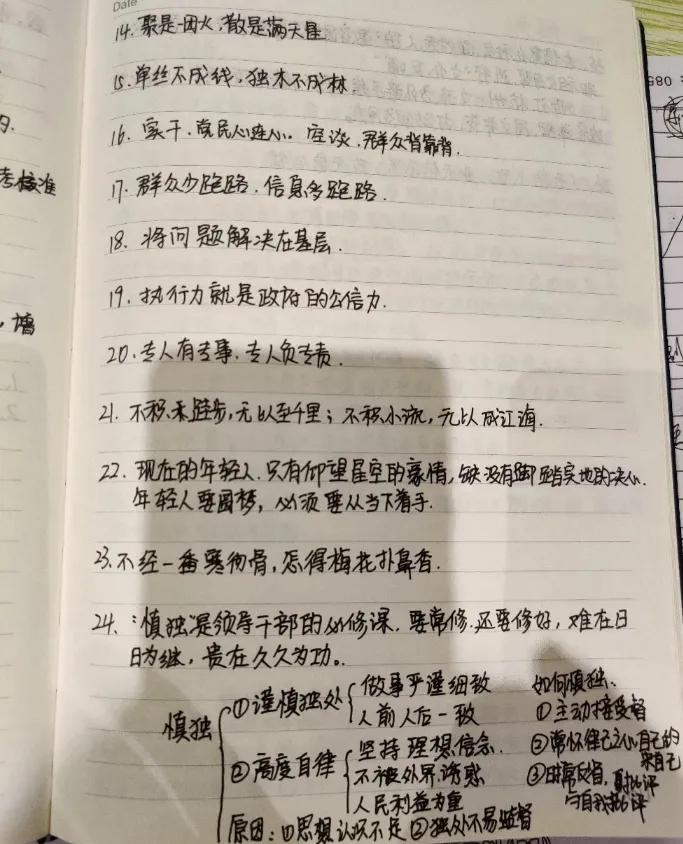 Date
14. 聚是一团火，散是满天星
15. 单丝不成线，独木不成林
16. 实干，党民心连心。座谈，群众背靠背.
17. 群众少跑路，信息多跑路.
18. 将问题解决在基层.
19. 执行力就是政府的公信力.
20. 专人有专事，专人负专责.
21. 不积跬步，无以至千里；不积小流，无以成江海.
22. 现在的年轻人，只有仰望星空的豪情，缺没有脚踏实地的决心.
年轻人要圆梦，必须要从当下着手.
23. 不经一番寒彻骨，怎得梅花扑鼻香.
24. 慎独是领导干部的必修课，要常修.还要修好，难在日
日为继，贵在久久为功。
慎独
①谨慎独处
做事严谨细致
人前人后一致
②高度自律
坚持理想信念.
不被外界诱惑
人民利益为重
原因：①思想认识不足 ②独处不易监督
如何慎独：
①主动接受督
②常怀律己之心
③日常反省，
与自我批评
考核准
，墙
085